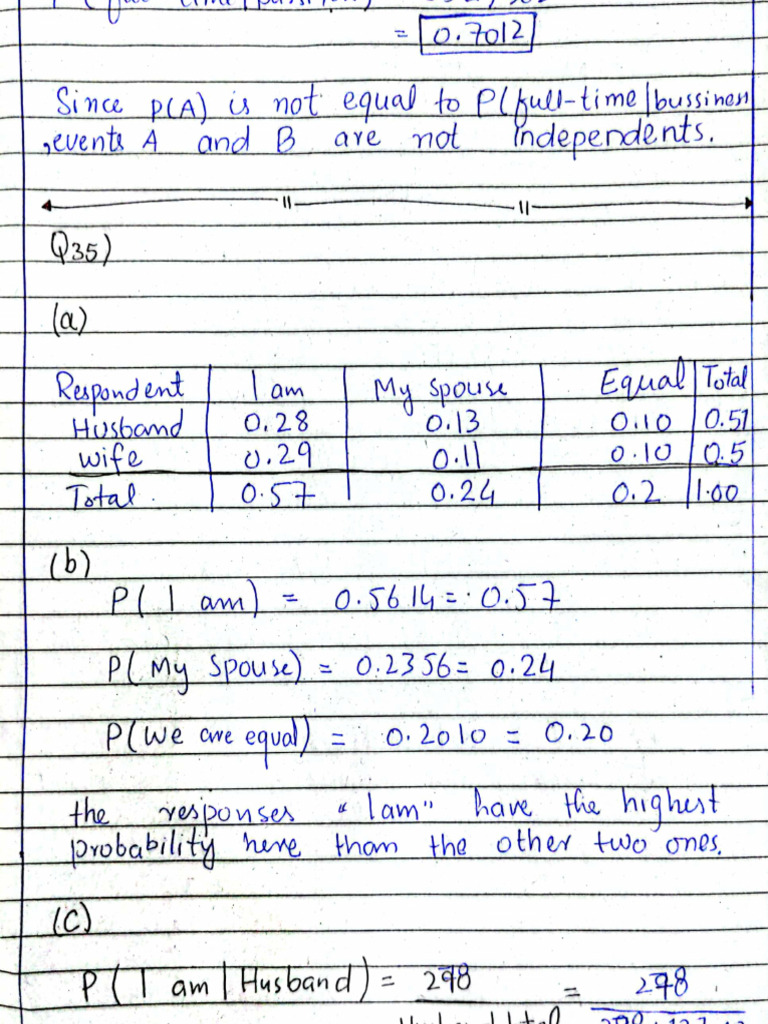 = 0.7012
Since P(A) is not equal to P(full-time|bussiness
,events A and B are not independents.
Q35)
(a)
Respondent I am My spouse Equal Total
Husband 0.28 0.13 0.10 0.51
wife 0.29 0.11 0.10 0.5
Total 0.57 0.24 0.2 1.00
(b)
P( I am) = 0.5614 = 0.57
P( My Spouse) = 0.2356 = 0.24
P(we are equal) = 0.2010 = 0.20
the responses "I am" have the highest
probability here than the other two ones.
(C)
P( I am | Husband) = 278 = 278